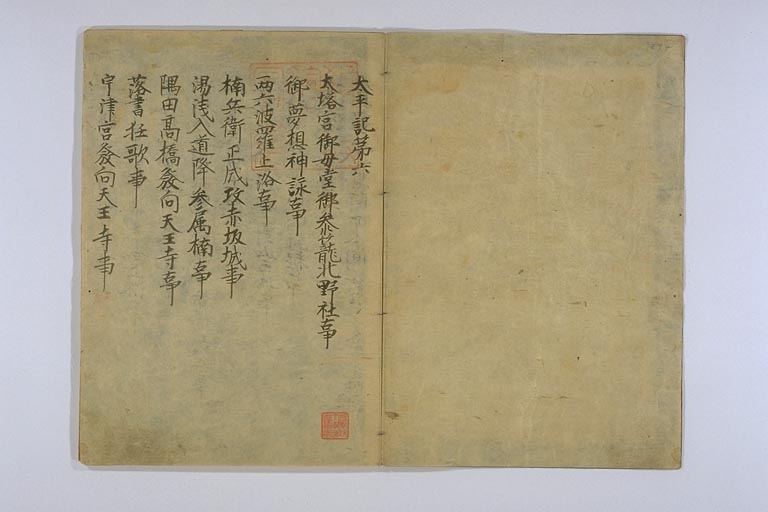 太平記第六
大塔宮御母堂御参籠北野社事
御夢想神詠事
両六波羅上洛事
楠兵衛正成攻赤坂城事
湯浅入道降参属楠事
隅田高橋発向天王寺事
落書狂歌事
宇津宮発向天王寺事